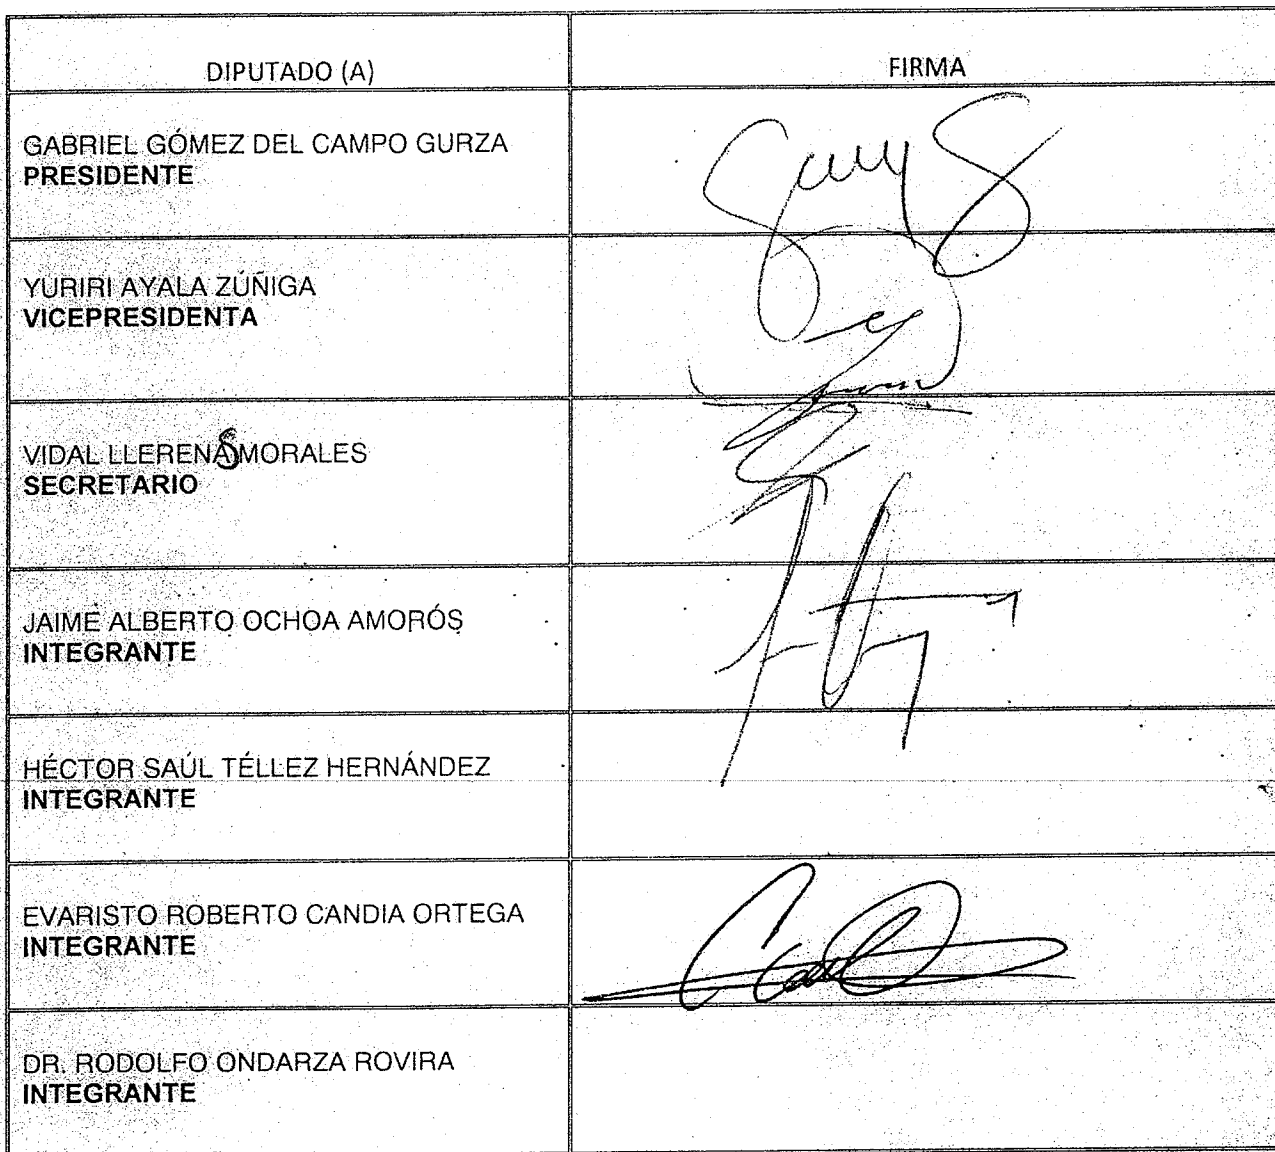 DIPUTADO (A)
FIRMA
GABRIEL GÓMEZ DEL CAMPO GURZA
PRESIDENTE
YURIRI AYALA ZÚÑIGA
VICEPRESIDENTA
VIDAL LLERENAS MORALES
SECRETARIO
JAIME ALBERTO OCHOA AMORÓS
INTEGRANTE
HÉCTOR SAÚL TÉLLEZ HERNÁNDEZ
INTEGRANTE
EVARISTO ROBERTO CANDIA ORTEGA
INTEGRANTE
DR. RODOLFO ONDARZA ROVIRA
INTEGRANTE